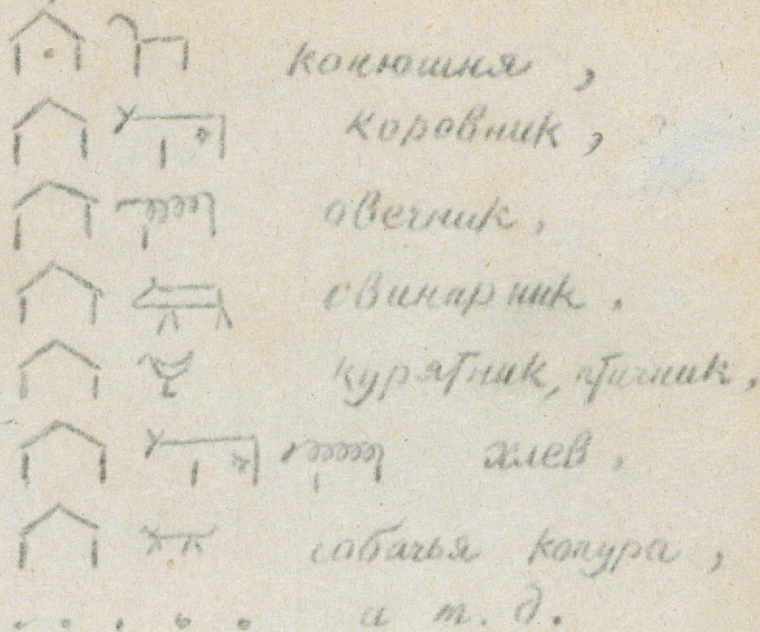 конюшня,
коровник,
овечник,
свинарник.
курятник, птичник,
хлев,
собачья конура,
и т. д.